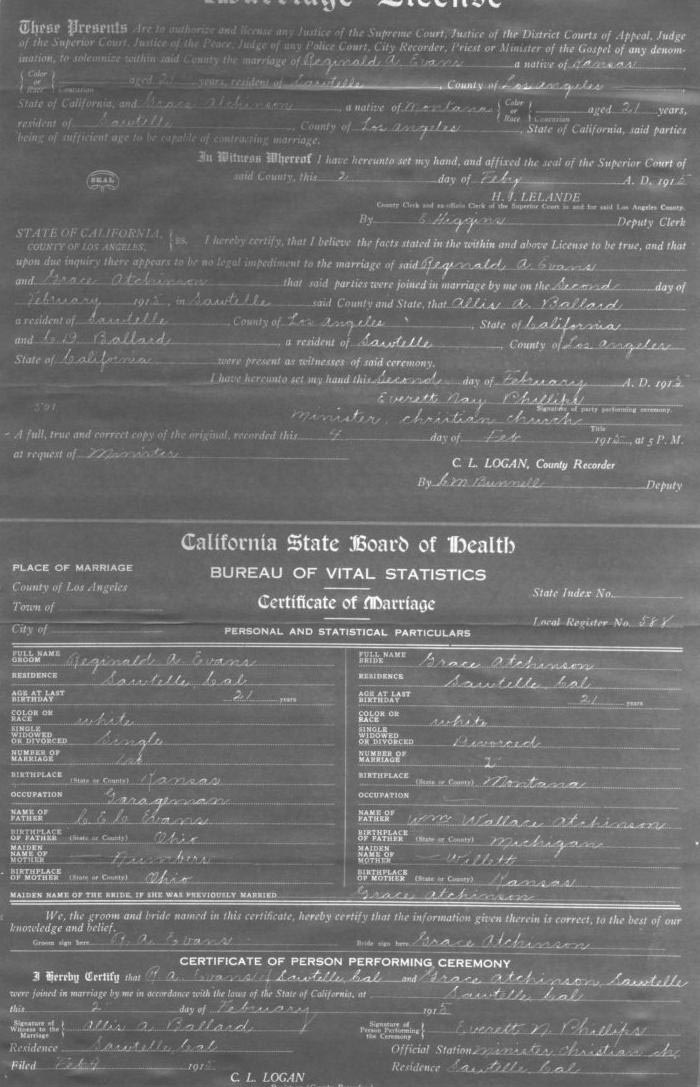 Marriage License
These Presents Are to authorize and license any Justice of the Supreme Court, Justice of the District Courts of Appeal, Judge
of the Superior Court, Justice of the Peace, Judge of any Police Court, City Recorder, Priest or Minister of the Gospel of any denom-
ination, to solemnize within said County the marriage of Reginald A. Evans a native of Kansas
Color or Race Caucasian aged 21 years, resident of Sawtelle, County of Los Angeles,
State of California, and Grace Atchinson, a native of Montana Color or Race Caucasian aged 21 years,
resident of Sawtelle, County of Los Angeles, State of California, said parties
being of sufficient age to be capable of contracting marriage.
In Witness Whereof I have hereunto set my hand, and affixed the seal of the Superior Court of
SEAL said County, this 2 day of Feby A. D. 1915
H. J. LELANDE
County Clerk and ex-officio Clerk of the Superior Court in and for said Los Angeles County.
By E Higgins Deputy Clerk
STATE OF CALIFORNIA,
COUNTY OF LOS ANGELES, } ss. I hereby certify, that I believe the facts stated in the within and above License to be true, and that
upon due inquiry there appears to be no legal impediment to the marriage of said Reginald A. Evans
and Grace Atchinson that said parties were joined in marriage by me on the Second day of
February 1915, in Sawtelle said County and State, that Allis A. Ballard
a resident of Sawtelle, County of Los Angeles, State of California
and C. D. Ballard, a resident of Sawtelle, County of Los Angeles
State of California were present as witnesses of said ceremony.
I have hereunto set my hand this Second day of February A. D. 1915
Everett Nay Phillips
Signature of party performing ceremony.
591 minister, christian church
Title
A full, true and correct copy of the original, recorded this 4 day of Feb 1915, at 5 P. M.
at request of Minister
C. L. LOGAN, County Recorder
By C M Bunnell Deputy
California State Board of Health
BUREAU OF VITAL STATISTICS
Certificate of Marriage
PLACE OF MARRIAGE
County of Los Angeles
Town of
City of
State Index No.
Local Register No. 588
PERSONAL AND STATISTICAL PARTICULARS
FULL NAME GROOM Reginald A. Evans
RESIDENCE Sawtelle, Cal
AGE AT LAST BIRTHDAY 21 years
COLOR OR RACE white
SINGLE WIDOWED OR DIVORCED Single
NUMBER OF MARRIAGE 1st
BIRTHPLACE (State or County) Kansas
OCCUPATION Garageman
NAME OF FATHER C. E. C. Evans
BIRTHPLACE OF FATHER (State or County) Ohio
MAIDEN NAME OF MOTHER — Numbers
BIRTHPLACE OF MOTHER (State or County) Ohio
FULL NAME BRIDE Grace Atchinson
RESIDENCE Sawtelle, Cal
AGE AT LAST BIRTHDAY 21 years
COLOR OR RACE white
SINGLE WIDOWED OR DIVORCED Divorced
NUMBER OF MARRIAGE 2"
BIRTHPLACE (State or County) Montana
OCCUPATION
NAME OF FATHER Wm Wallace Atchinson
BIRTHPLACE OF FATHER (State or County) Michigan
MAIDEN NAME OF MOTHER — Willett
BIRTHPLACE OF MOTHER (State or County) Kansas
MAIDEN NAME OF THE BRIDE, IF SHE WAS PREVIOUSLY MARRIED Grace Atchinson
We, the groom and bride named in this certificate, hereby certify that the information given therein is correct, to the best of our
knowledge and belief.
Groom sign here R. A. Evans Bride sign here Grace Atchinson
CERTIFICATE OF PERSON PERFORMING CEREMONY
I Hereby Certify that R A Evans of Sawtelle, Cal and Grace Atchinson, Sawtelle
were joined in marriage by me in accordance with the laws of the State of California, at Sawtelle Cal
this 2" day of February 1915
Signature of Witness to the Marriage Allis A Ballard
Signature of Person Performing the Ceremony Everett N. Phillips
Residence Sawtelle, Cal Official Station minister christian ch.
Filed Feb 4 1915 Residence Sawtelle, Cal
C. L. LOGAN